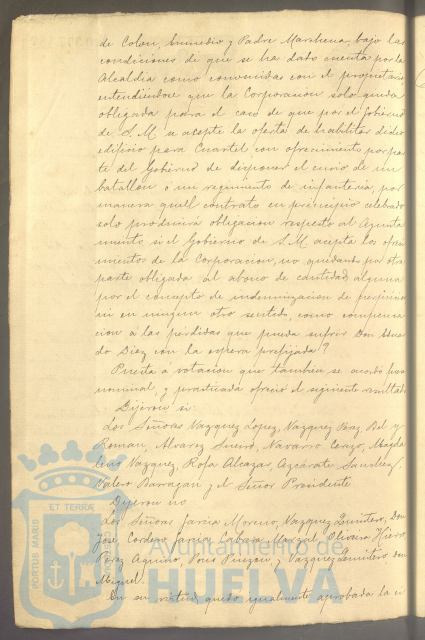 de Colon, Inmedio y Padre Marchena, bajo las
condiciones de que se ha dado cuenta por la
Alcaldia como convenidas con el propietario
entendiendose que la Corporacion solo queda
obligada para el caso de que por el Gobierno
de S. M. se acepte la oferta de habilitar dicho
edificio para Cuartel con ofrecimiento por par-
te del Gobierno de disponer el envio de un
batallon ó un regimiento de infanteria, por
manera que el contrato en principio celebrado
solo producirá obligacion respecto al Ayunta
miento si el Gobierno de S. M. acepta los ofreci
mientos de la Corporacion, no quedando por otra
parte obligada al abono de cantidad alguna
por el concepto de indemnizacion de perjuicios
ni en ningun otro sentido, como compensa
cion a las pérdidas que pueda sufrir Don
Diaz con la espera prefijada?
Puesta á votacion que tambien se acordó fuese
nominal, y practicada ofreció el siguiente resultado
Dijeron si
Los Señores Vazquez Lopez, Vazquez Perez, Bel y
Roman, Alvarez Suero, Navarro Cerezo, Magda
leno Vazquez, Rofa Alcazar, Azcárate Sanchez,
Valero Barragán y el Señor Presidente
Dijeron no
Los Señores Garcia Moreno, Vazquez Quintero, Don
José, Cordero, Garcia Cabaza, Marzal, Olivares Hierro
Perez Aquino, Pons Pinzon y Vazquez Quintero don
Miguel.
En su virtud, quedó igualmente aprobada la ci
PORTUS MARIS ET TERRA
Ayuntamiento de
HUELVA